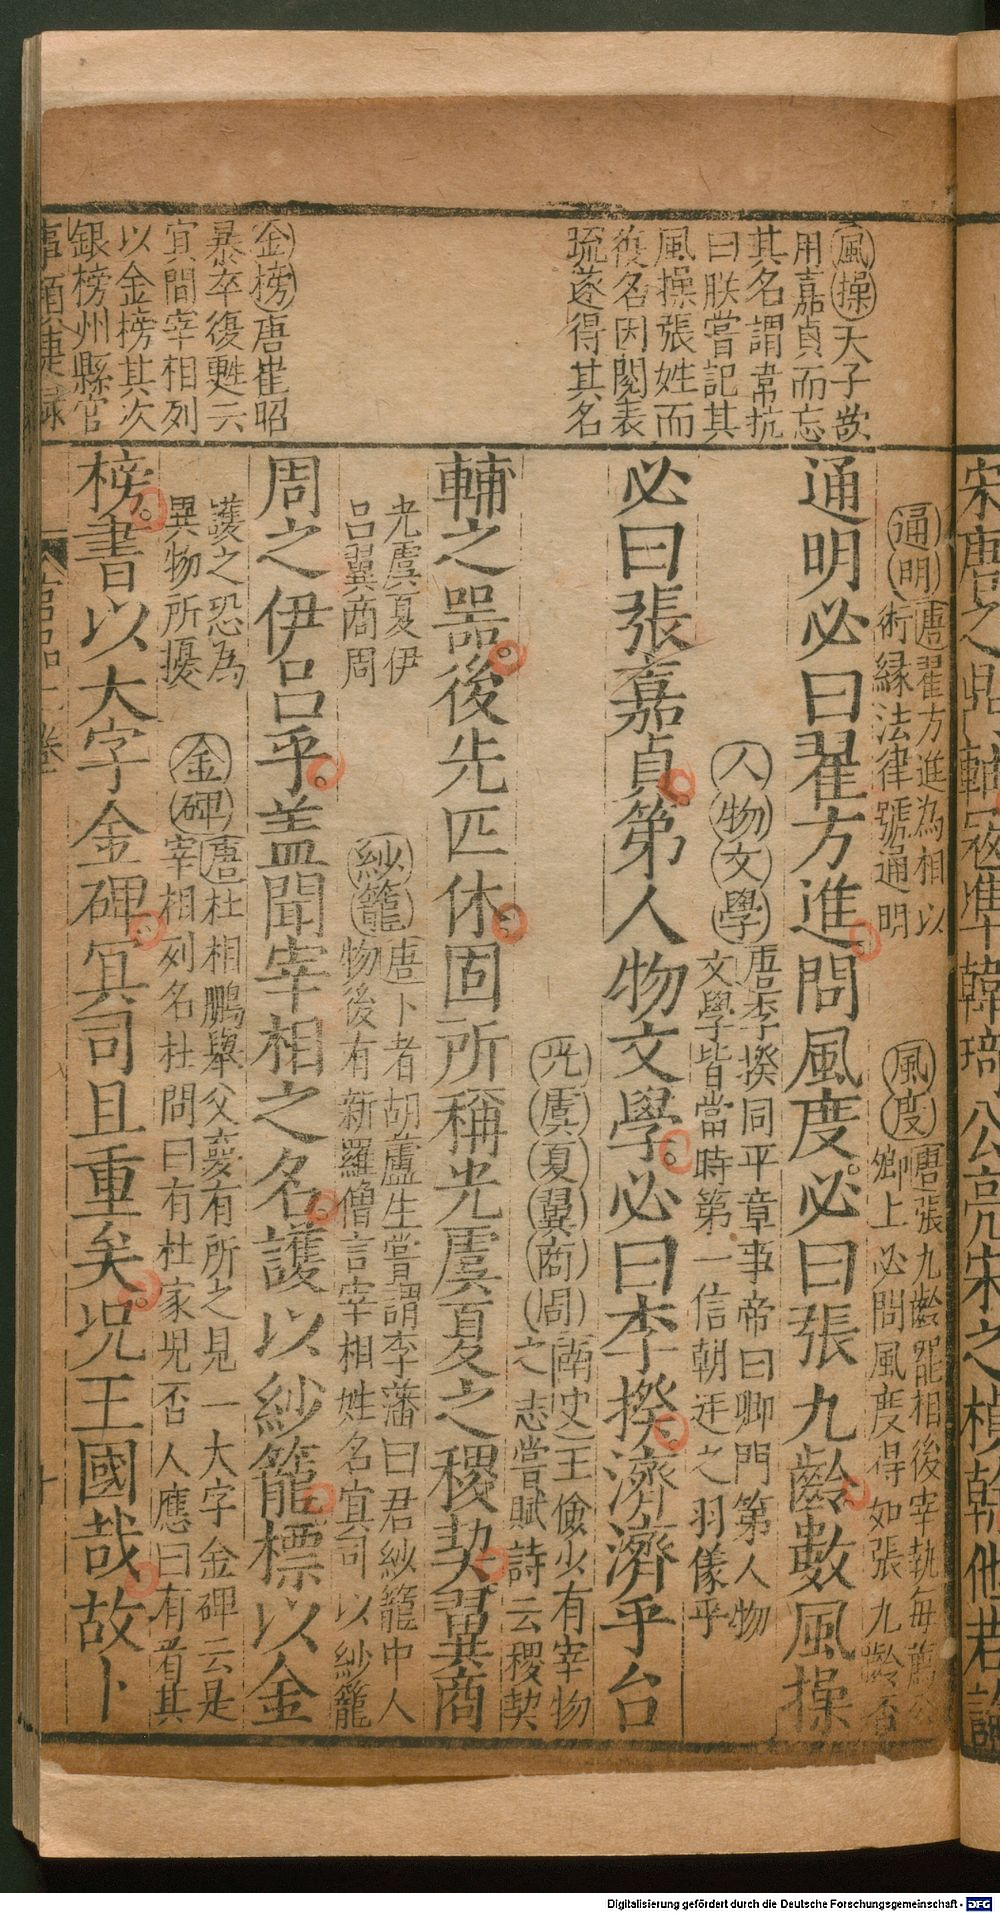 風操天子欲
用嘉貞而忘
其名謂韋抗
曰朕嘗記其
風操張姓而
復名因閱表
疏遂得其名
金榜唐崔昭
暴卒復甦云
冥間宰相列
以金榜其次
銀榜州縣官
通明唐翟方進為相以
術緣法律號通明
風度唐張九齡罷相後宰執每薦公
卿上必問風度得如張九齡否
通明必曰翟方進問風度必曰張九齡數風操
人物文學唐李揆同平章事帝曰卿門第人物
文學皆當時第一信朝廷之羽儀乎
必曰張嘉貞第人物文學必曰李揆濟濟乎台
光虞夏翼商周南史王儉少有宰物
之志嘗賦詩云稷契
輔之器後先匹休固所稱光虞夏之稷契翼商
光虞夏伊
呂翼商周
紗籠唐卜者胡蘆生嘗謂李藩曰君紗籠中人
物後有新羅僧言宰相姓名冥司以紗籠
周之伊呂乎盖聞宰相之名護以紗籠標以金
護之恐為
異物所擾
金碑唐杜相鵬舉父夢有所之見一大字金碑云是
宰相列名杜問曰有杜家兒否人應曰有看其
榜書以大字金碑冥司且重矣况王國哉故卜
宋唐之鼎輔寇準韓琦公亮宋之楨榦他若論